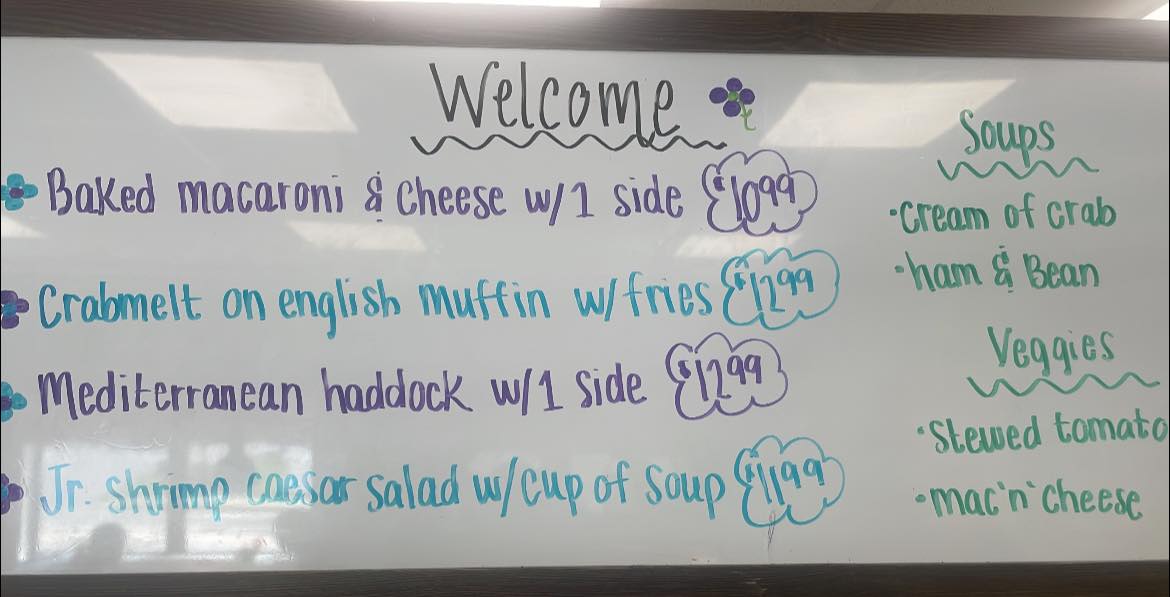 Welcome
Baked macaroni & Cheese w/1 side $10.99
Crabmelt on english muffin w/fries $12.99
Mediterranean haddock w/1 side $12.99
Jr. shrimp caesar salad w/cup of soup $11.99
Soups
·cream of crab
·ham & Bean
Veggies
·Stewed tomato
·mac'n'cheese